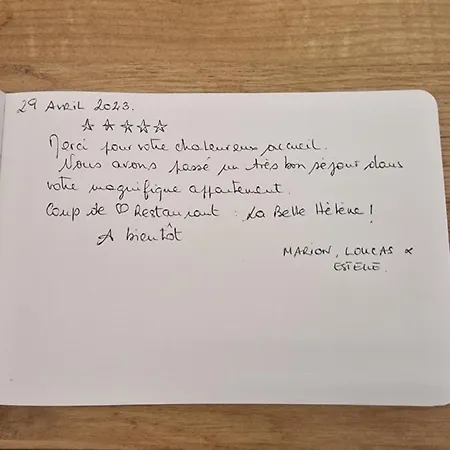 29 Avril 2023.
☆ ☆ ☆ ☆ ☆
Merci pour votre chaleureux accueil.
Nous avons passé un très bon séjour dans
votre magnifique appartement.
Coup de ♡ Restaurant : La Belle Hélène !
A bientôt
MARION, LOUCAS &
ESTELLE.